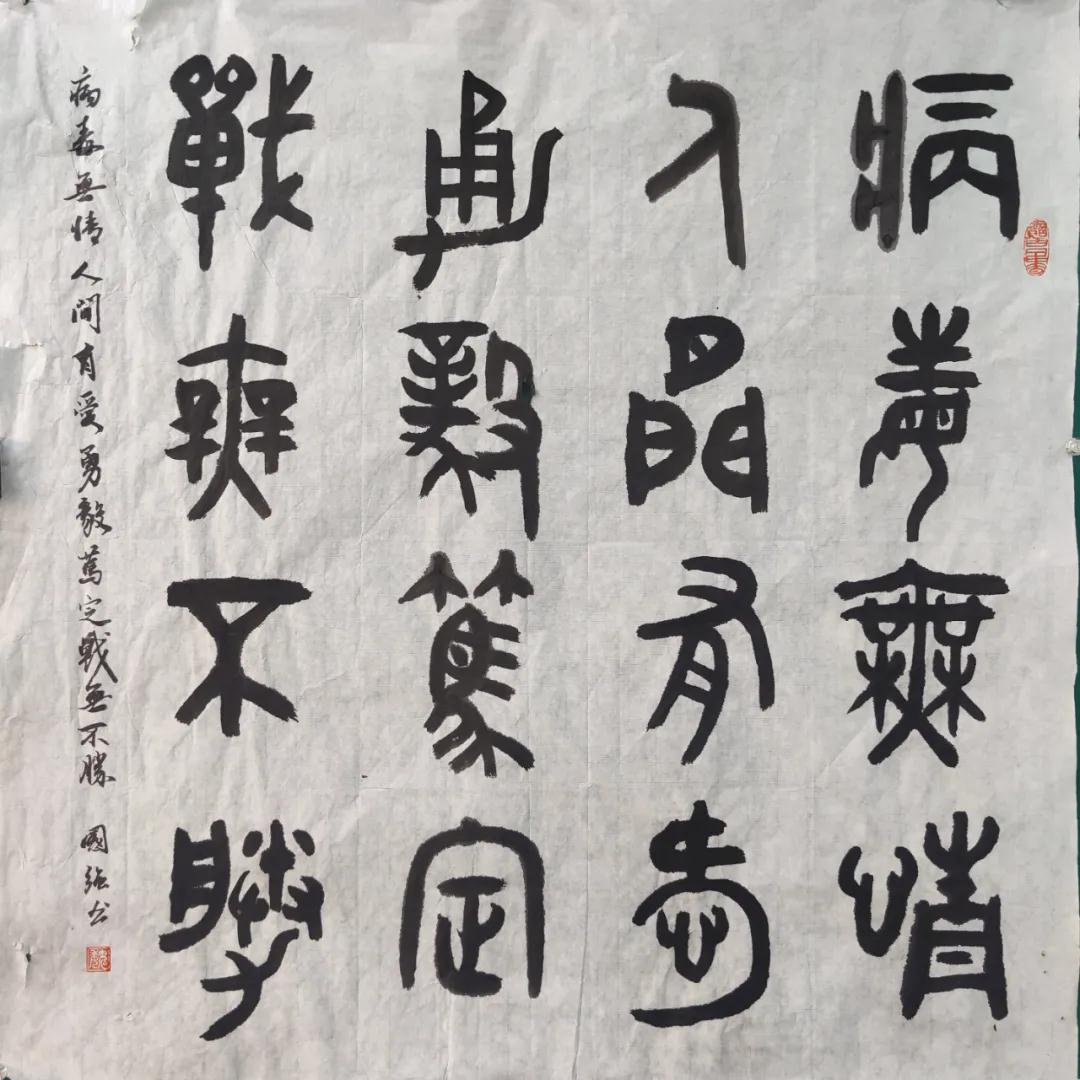 病毒無情
人間有愛
勇毅篤定
戰無不勝
病毒無情人間有愛勇毅篤定戰無不勝 國強書